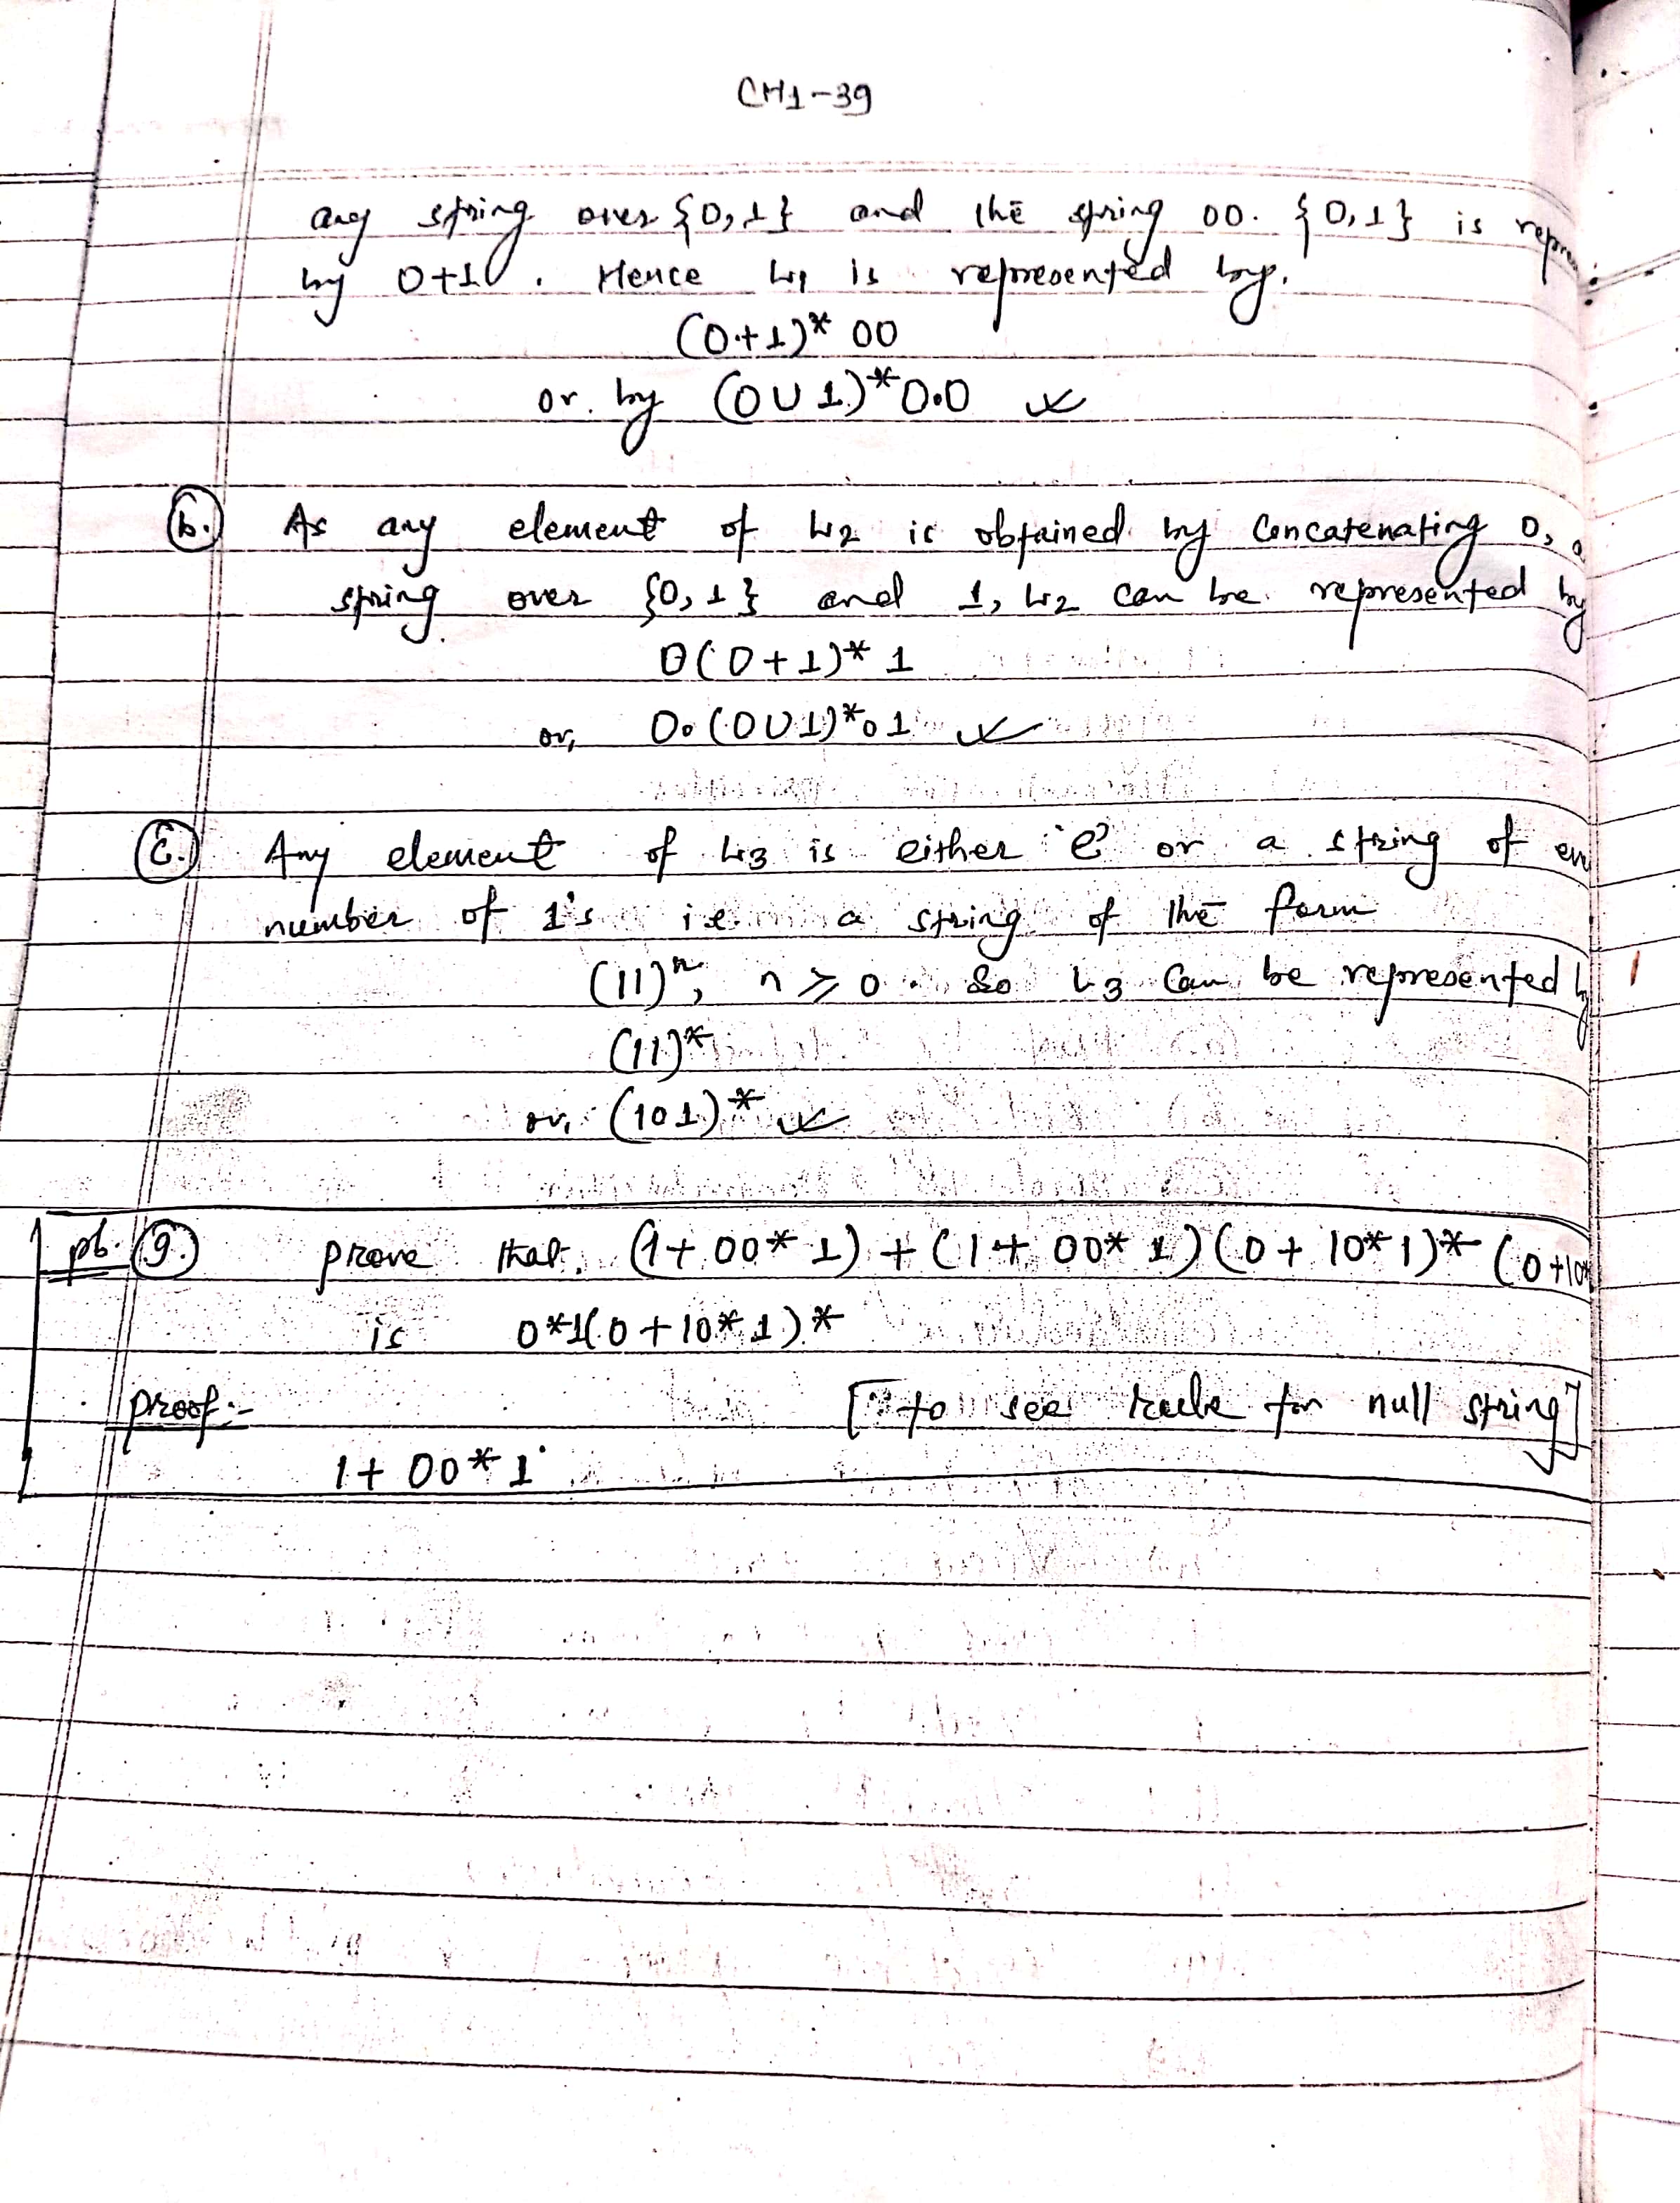 CH1-39
any string over {0,1} and the string 00. {0,1} is
by 0+1. Hence L1 is represented by.
(0+1)* 00
or. by (0 U 1)*0.0
(b.) As any element of L2 is obtained by Concatenating 0, a
string over {0,1} and 1, L2 can be represented by
0(0+1)* 1
or, 0o(0U1)*o1
(c.) Any element of L3 is either 'e' or a string of
number of 1's i.e. a string of the form
(11)ⁿ, n ⩾ 0. So L3 Can be represented by
(11)*
or, (1o1)*
pb. (9.) prove that. (1+00*1)+(1+00*1)(0+10*1)*(0+10*
is 0*1(0+10*1)*
proof:- [to see rule for null string]
1+00*1